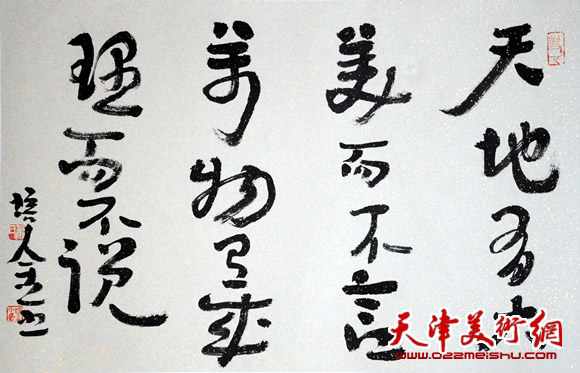 天地有大
美而不言
萬物有成
理而不说
天津美術網
www.022meishu.com